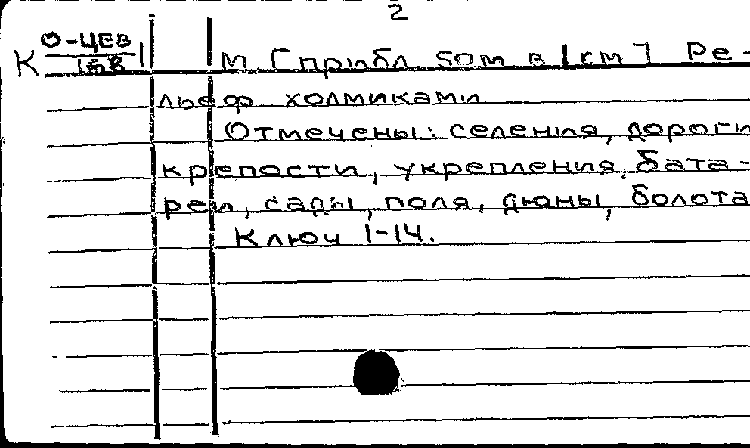 2
К О-ЦЕВ
168
М [прибл 50м в 1см] Ре-
льеф холмиками
Отмечены: селения, дороги
крепости, укрепления, бата-
реи, сады, поля, дюны, болота
Ключ 1-14.